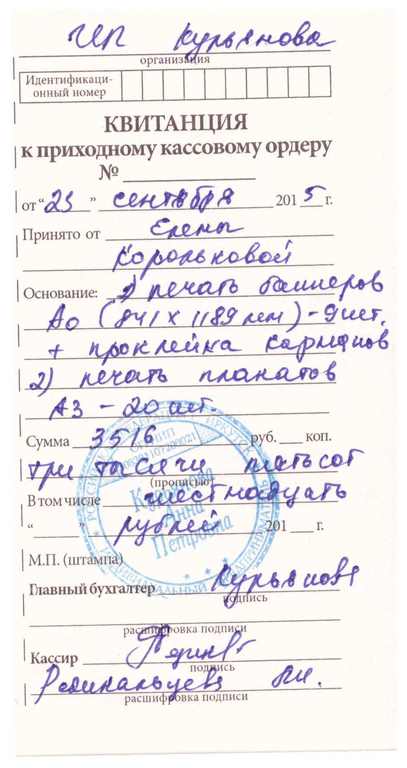 ИП Курьянова
организация
Идентификаци-
онный номер
КВИТАНЦИЯ
к приходному кассовому ордеру
№
от "23" сентября 2015 г.
Принято от Елены
Корольковой
Основание: 1) печать баннеров
А0 (841 х 1189 мм) - 9 шт.
+ проклейка карманов
2) печать плакатов
А3 - 20 шт.
Сумма 3516 руб. коп.
три тысячи пятьсот
(прописью)
В том числе шестнадцать
" " рублей 201 г.
М.П. (штампа)
Главный бухгалтер Курьянова
подпись
расшифровка подписи
Кассир
подпись
расшифровка подписи
Анна
Петровна
ИНДИВИДУАЛЬНЫЙ ПРЕДПРИНИМАТЕЛЬ